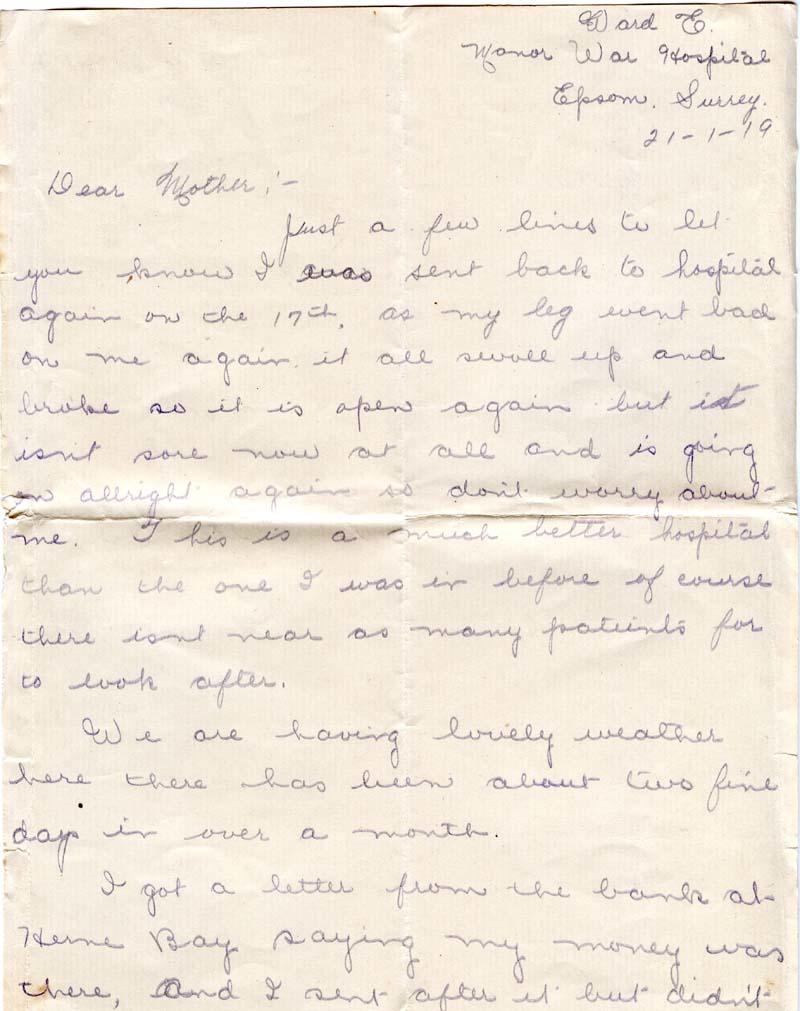 Ward E.
Manor War Hospital
Epsom, Surrey.
21-1-19
Dear Mother;-
Just a few lines to let
you know I was sent back to hospital
again on the 17th, as my leg went bad
on me again. it all swoll up and
broke so it is open again but it
isn't sore now at all and is going
on allright again so don't worry about
me. This is a much better hospital
than the one I was in before of course
there isnt near as many patients for
to look after.
We are having lovely weather
here there has been about two fine
days in over a month.
I got a letter from the bank at
Herne Bay saying my money was
there, and I sent after it but didn't